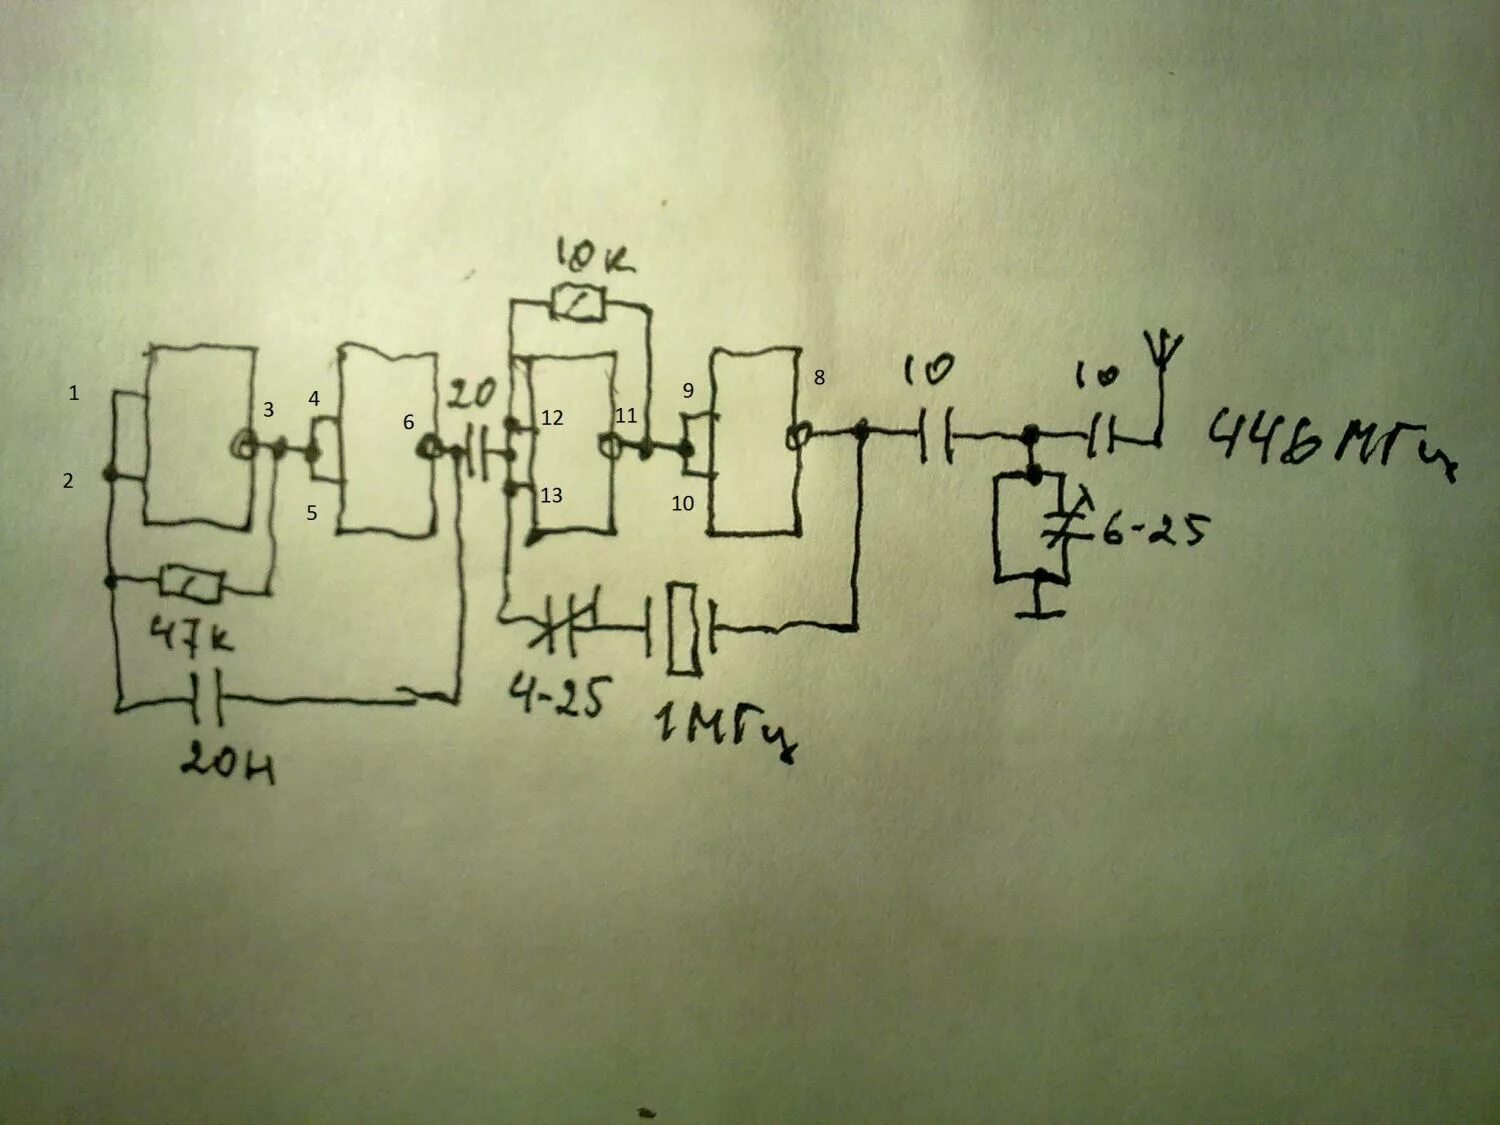 10к
1
2
3
4
5
6
20
12
13
11
9
10
8
10
10
446 МГц
6-25
47к
20н
4-25
1 МГц